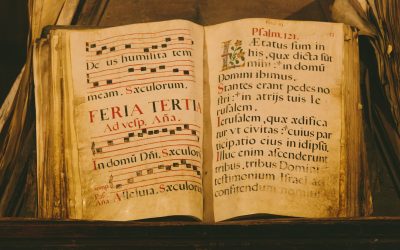 De us humilita tem
meam. Sæculorum.
FERIA TERTIA
Ad vesp. Aña.
In domũ Dñi. Sæculorũ
Psal.
Aña. Alleluia. Sæculorũ
Psalm. 121.
Lætatus sum in
his, quæ dicta sũt
mihi: in domũ
Domini ibimus.
Stantes erant pedes no-
stri: in atrijs tuis Ie-
rusalem.
Ierusalem, quæ ædifica-
tur vt civitas: cuius par-
ticipatio eius in idipsũ.
Illuc enim ascenderunt
tribus, tribus Domini
testimonium Israel ad
confitendum nomini